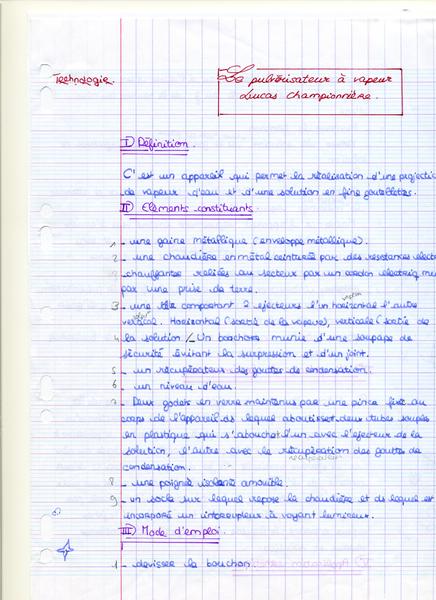 Technologie.
Le pulvérisateur à vapeur
Lucas championnière.
I) Définition.
C'est un appareil qui permet la réalisation d'une projection
de vapeur d'eau et d'une solution en fine goutelettes.
II) Elements constituants.
1 - une gaine métallique (enveloppe métallique).
2 - une chaudière en métal ceinturée par des resistances elect
chauffantes reliées au secteur par un cordon electriq mu
par une prise de terre.
3 - une comportant 2 ejecteurs l'un horizontal l'autre
vertical. Horizontal (sortie de la vapeur), verticale (sortie de
la solution /
4 - Un bouchons munie d'une soupape de
sécurité évitant la surpression et d'un joint.
5 - un récupérateur des gouttes de condensation.
6 - un niveau d'eau.
7 - Deux godets en verre maintenus par une pince fixé au
corps de l'appareil ds lequel aboutissent deux tubes souples
en plastique qui s'abouchet l'un avec l'ejecteur de la
solution, l'autre avec le récupération des gouttes de
condensation.
8 - une poignée isolante amovible.
9 - un socle sur lequel repose la chaudière et ds lequel est
incorporé un interrupteur à voyant lumineux.
III) Mode d'emploi.
1 - devisser le bouchon